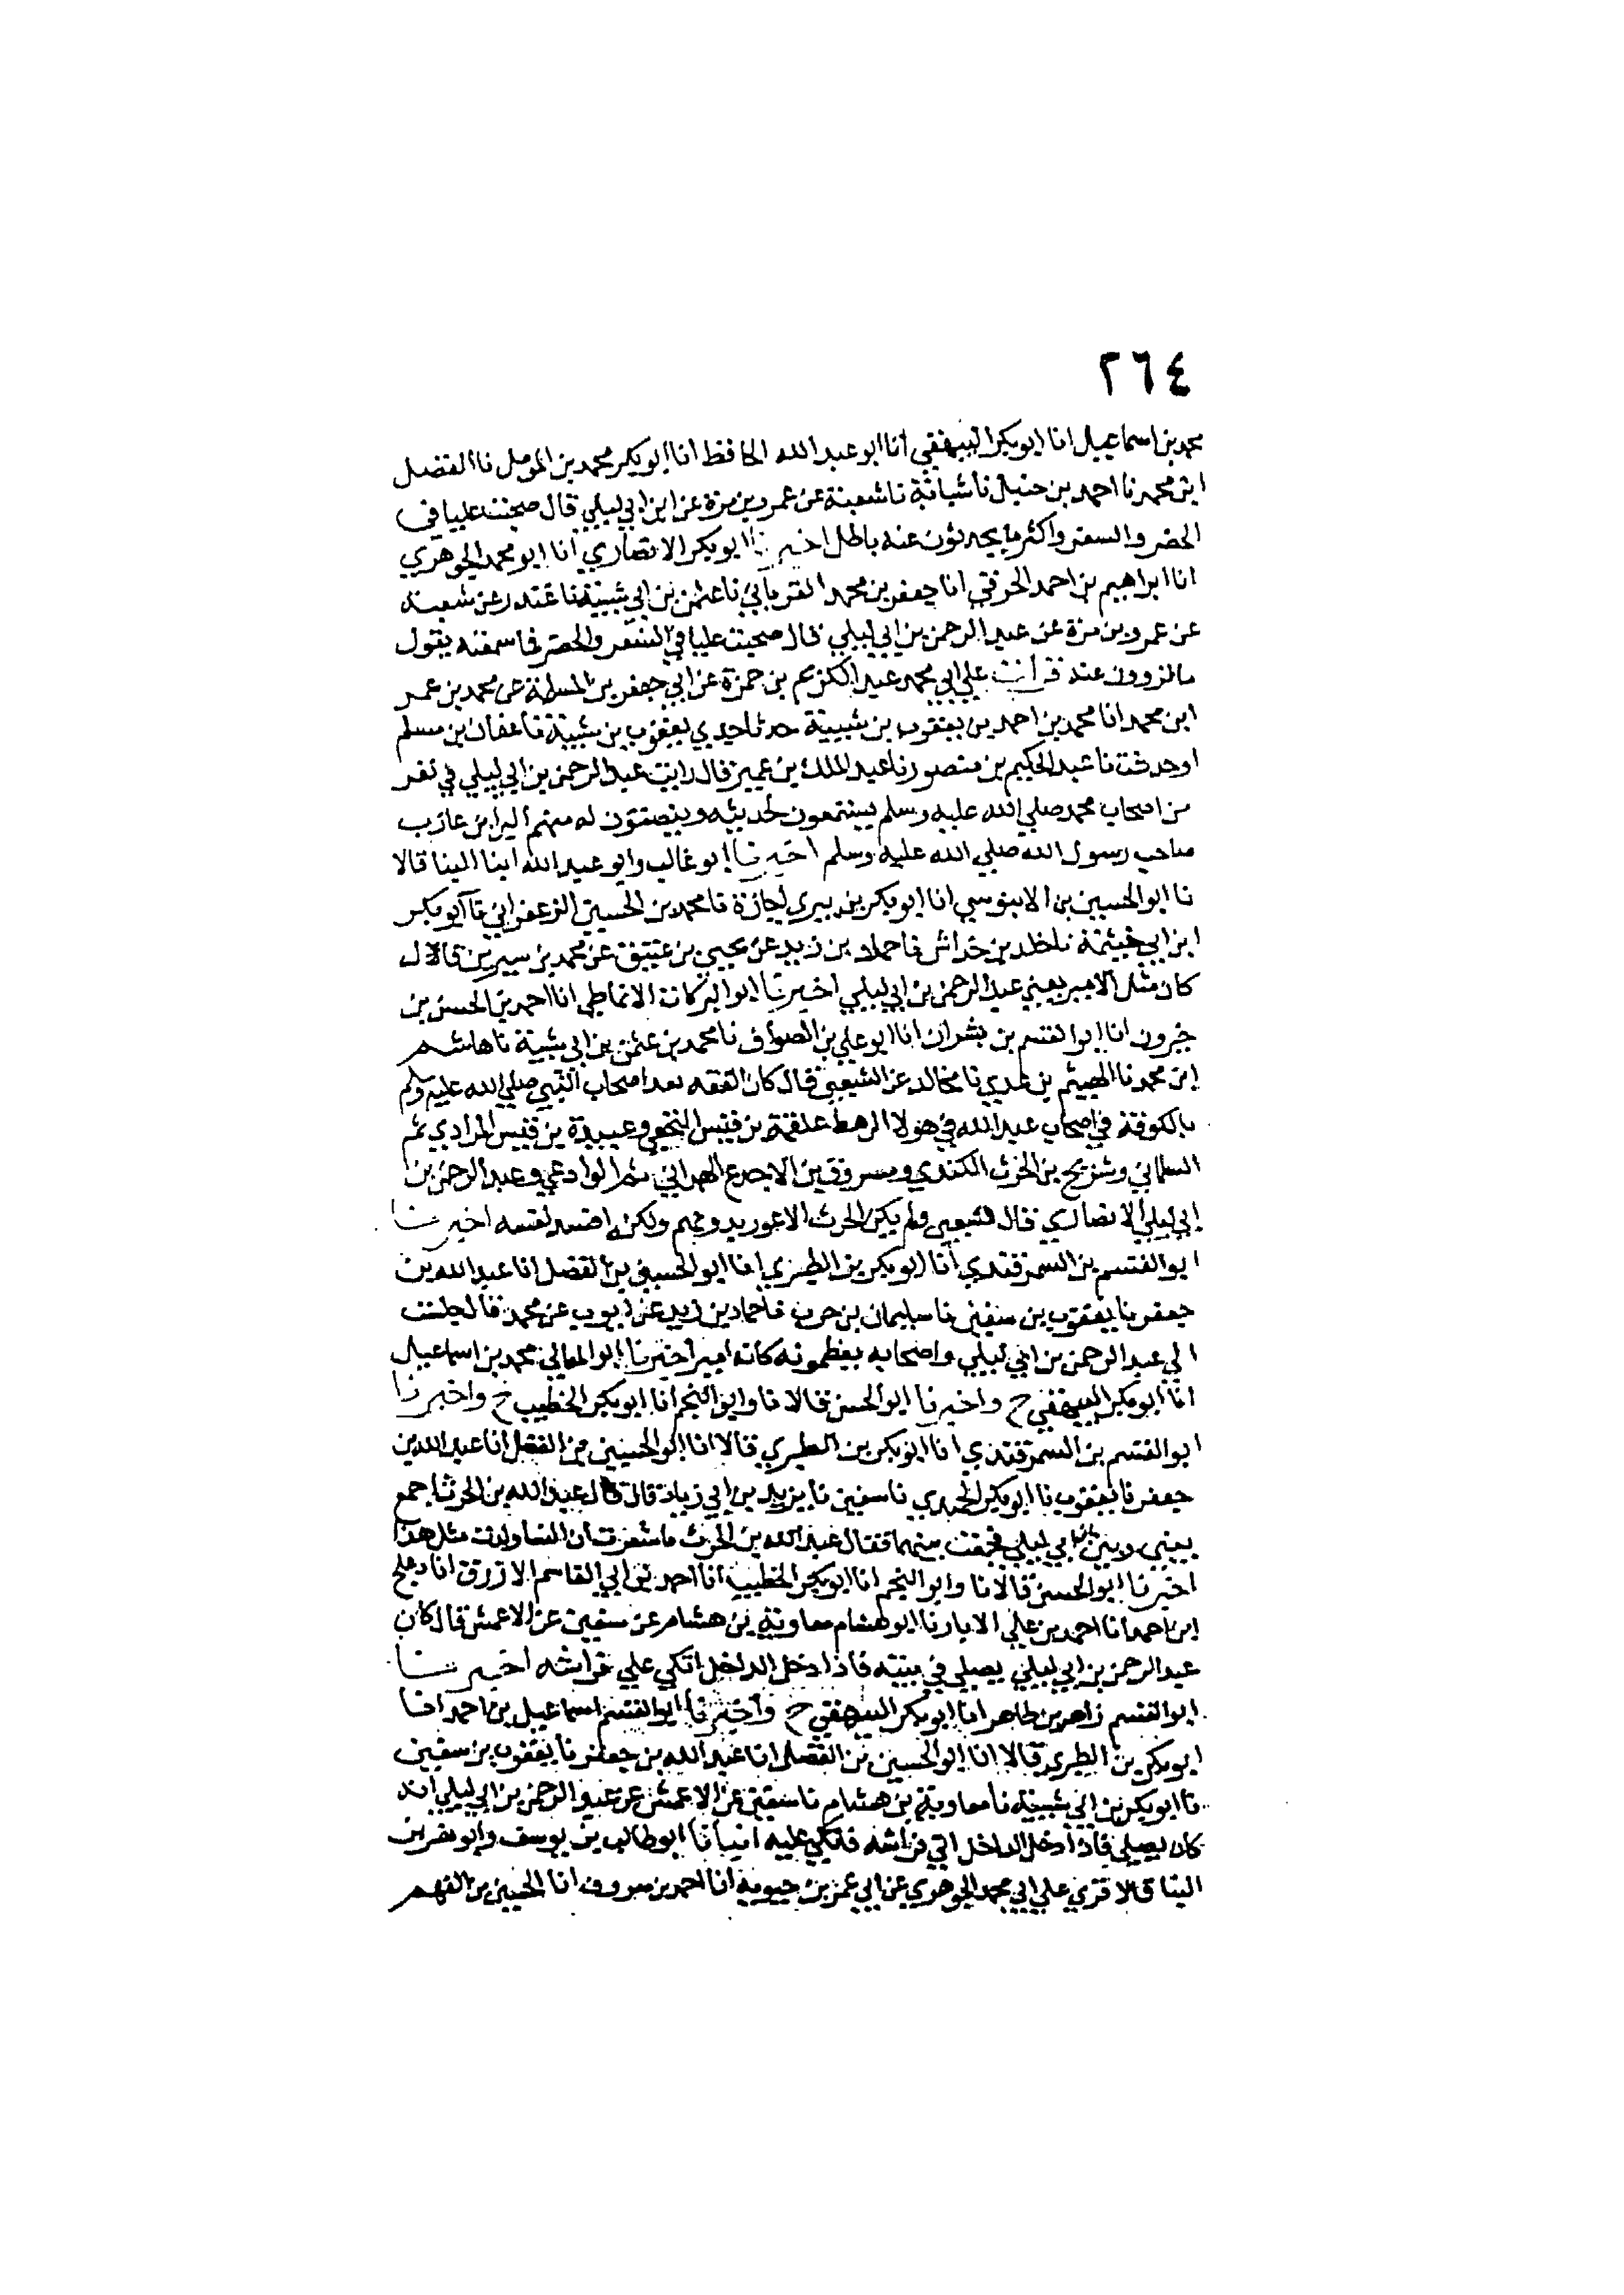 ٢٦٤
محمد بن اسماعيل انا ابو بكر البيهقي انا ابو عبد الله الحافظ انا ابو بكر محمد بن المومل نا الفضل
ابن محمد نا احمد بن حنبل نا شبابة نا شعبة عن عمرو بن مرة عن ابن ابي ليلي قال صحبت عليا في
الحضر والسفر واكثر ما يحدثون عنه باطل اخبرنا ابو بكر الانصاري انا ابو محمد الجوهري
انا ابراهيم بن احمد الخرقي انا جعفر بن محمد الفريابي نا عثمن بن ابي شيبة نا غندر عن شعبة
عن عمرو بن مرة عن عبد الرحمن بن ابي ليلي قال صحبت عليا في السفر والحضر فما سمعته يقول
ما تروون عنه قرات علي ابي محمد عبد الكريم بن حمزة عن ابي جعفر بن المسلمة عن محمد بن عمر
ابن محمد انا محمد بن احمد بن يعقوب بن شيبة حدثنا جدي يعقوب بن شيبة نا عفان بن مسلم
اوحدثت نا عبد الحكيم بن منصور نا عبد الملك بن عمير قال رايت عبد الرحمن بن ابي ليلي في نفر
من اصحاب محمد صلي الله عليه وسلم يستمعون لحديثه وينصتون له منهم البرا بن عازب
صاحب رسول الله صلي الله عليه وسلم اخبرنا ابو غالب وابو عبد الله ابنا البنا قالا
نا ابو الحسين بن الابنوسي انا ابو بكر بن بيري اجازة نا محمد بن الحسين الزعفراني نا ابو بكر
ابن ابي خيثمة نا خلد بن خداش نا حماد بن زيد عن يحيي بن عتيق عن محمد بن سيرين قال
كان مثل الامير يعني عبد الرحمن بن ابي ليلي اخبرنا ابو البركات الانماطي انا احمد بن الحسن بن
خيرون انا ابو القسم بن بشران انا ابو علي بن الصواف نا محمد بن عثمن بن ابي شيبة نا هاشم
ابن محمد نا الهيثم بن عدي نا مجالد عن الشعبي قال كان الفقه بعد اصحاب النبي صلي الله عليه وسلم
بالكوفة في اصحاب عبد الله في هولا الرهط علقمة بن قيس النخعي وعبيدة بن قيس المرادي ثم
السلماني وشريح بن الحرث الكندي ومسروق بن الاجدع الهمداني ثم الوادعي وعبد الرحمن بن
ابي ليلي الانصاري قال الشعبي ولم يكن الحرث الاعور بدونهم ولكنه افسد نفسه اخبرنا
ابو القسم بن السمرقندي انا ابو بكر بن الطبري انا ابو الحسين بن الفضل انا عبد الله بن
جعفر نا يعقوب بن سفين نا سليمان بن حرب نا حماد بن زيد عن ايوب عن محمد قال جلست
الي عبد الرحمن بن ابي ليلي واصحابه يعظمونه كانه امير اخبرنا ابو المعالي محمد بن اسماعيل
انا ابو بكر البيهقي ح واخبرنا ابو الحسن قالا نا وابو النجم انا ابو بكر الخطيب ح واخبرنا
ابو القسم بن السمرقندي انا ابو بكر بن الطبري قالا انا ابو الحسين بن الفضل انا عبد الله بن
جعفر نا يعقوب نا ابو بكر الحميدي نا سفين نا يزيد بن ابي زياد قال قال عبد الله بن الحرث اجمع
بيني وبين ابن ابي ليلي فجمعت بينهما فقال عبد الله بن الحرث ما شعرت ان النسا ولدت مثل هذا
اخبرنا ابو الحسن قالا نا وابو النجم انا ابو بكر الخطيب انا احمد بن ابي القاسم الازرق انا دعلج
ابن احمد انا احمد بن علي الابار نا ابو هشام معاوية بن هشام عن سفين عن الاعمش قال كان
عبد الرحمن بن ابي ليلي يصلي في بيته فاذا دخل الداخل اتكي علي فراشه اخبرنا
ابو القسم زاهر بن طاهر انا ابو بكر البيهقي ح واخبرنا ابو القسم اسماعيل بن احمد انا
ابو بكر بن الطبري قالا انا ابو الحسين بن الفضل انا عبد الله بن جعفر نا يعقوب بن سفين
نا ابو بكر بن ابي شيبة نا معاوية بن هشام نا سفين عن الاعمش عن عبد الرحمن بن ابي ليلي انه
كان يصلي فاذا دخل الداخل اتي فراشه فاتكي عليه انبانا ابو طالب بن يوسف وابو نصر بن
البنا قالا قري علي ابي محمد الجوهري عن ابي عمر بن حيوية انا احمد بن معروف انا الحسين بن الفهم